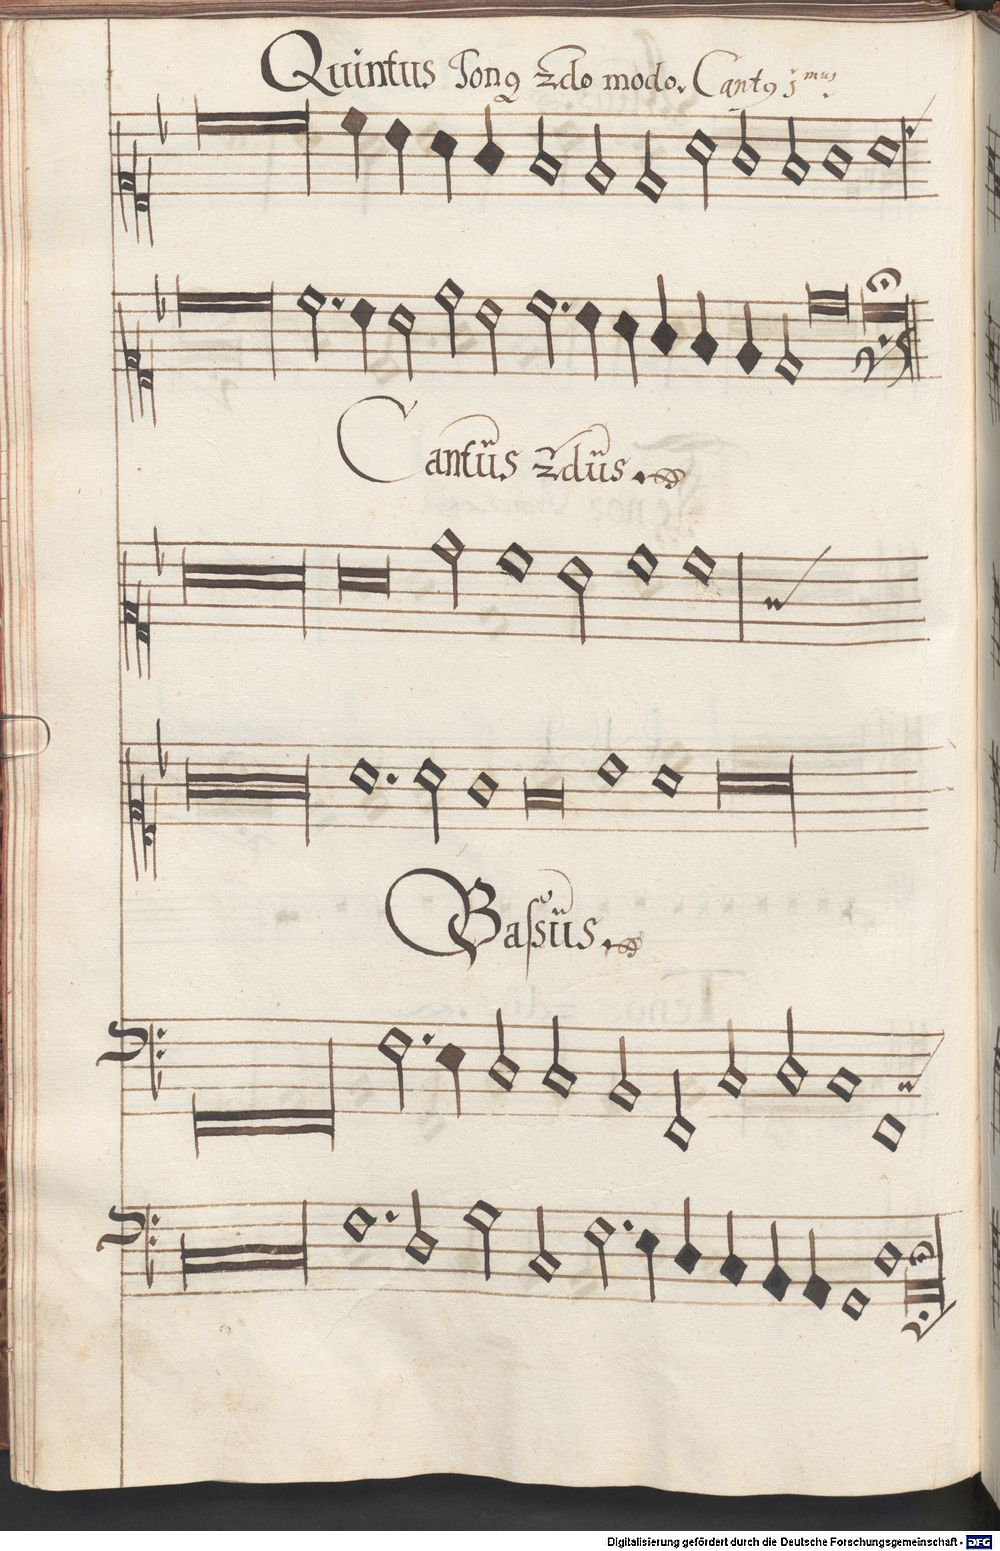 Quintus Tonꝯ 2do modo. Cantꝯ j^mus.
Cantüs 2düs.
Bassüs.
Digitalisierung gefördert durch die Deutsche Forschungsgemeinschaft - DFG